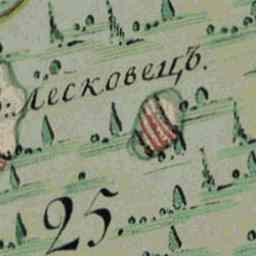 Лесковецъ.
25.